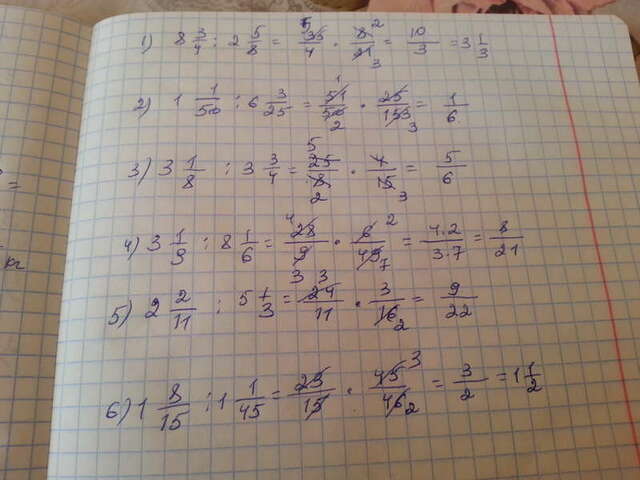 1) 8 3/4 : 2 5/8 = 35/4 5 · 8/21 2 3 = 10/3 = 3 1/3
2) 1 1/50 : 6 3/25 = 51/50 1 2 · 25/153 3 = 1/6
3) 3 1/8 : 3 3/4 = 25/8 5 2 · 4/15 3 = 5/6
4) 3 1/9 : 8 1/6 = 28/9 4 3 · 6/49 2 7 = 4·2/3·7 = 8/21
5) 2 2/11 : 5 1/3 = 24/11 3 · 3/16 2 = 9/22
6) 1 8/15 : 1 1/45 = 23/15 · 45/46 3 2 = 3/2 = 1 1/2
=
кг